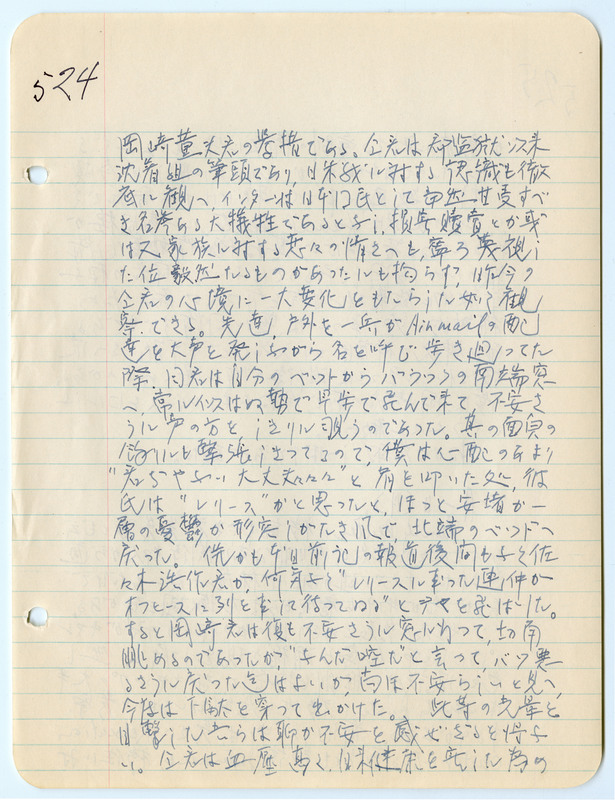 524
岡崎 君の挙措である。仝君は 監獄以来
沈着組の筆頭であり、日米戦に対する認識も徹
底に観へ、インターは日本国民として当然甘受すべ
き名誉ある大犠牲であると予し、損害賠償とか或
は又家族に対する 々の情さへも、寧ろ蔑視し
た位毅然たるものがあったにも拘らず、昨今の
仝君の心境に一大変化をもたらした如く観
察できる。先達、戸外を一兵がAirmailの配
達を大声を発しながら名を呼び歩き廻ってた
際、同君は自分のベットからバラックの南端窓
へ、 早歩で飛んで来て、不安さ
うに声の方を、しきりに覗うのであった。其の面貌の
余りにも緊張しきってるので、僕は心配の余り
"君ぢゃない大丈夫々々々"と肩を叩いた処、彼
氏は"レリース"かと思ったと、ほっと安堵が一
層の憂鬱が形容しがたき爪で、北端のベットへ
戻った。 恰かも本日前記の報道後間もなく佐
々木 作君が、何気なく"レリースに玉った連中が
オフヒースに列をして待ってゐる"とデマを飛ばした。
すると岡崎君は復も不安さうに窓に行って、 
眺めるのであったが、"なんだ嘘だ"と言って、バツ悪
るさうに戻った迄はよいが、尚ほ不安らしいと見へ、
今度は下駄を穿って出かけた。 此等の光景を
目撃した者らは聊か不安を感ぜざると得な
い。仝君は血圧高く、日来健康を害した為の